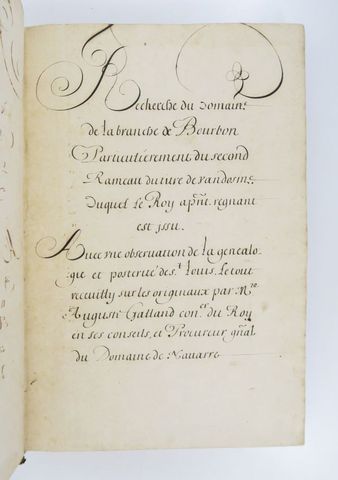 Recherche du Domaine
de la branche de Bourbon
Particulierement du second
Rameau du titre de vandosme
Duquel Le Roy apnt. regnant
est issu.
Avec une observation de la genealo-
gie et posterité de st. Louis. Le tout
recueilly sur les originaux par Mre.
Auguste Galland coner. du Roy
en ses conseils, et Procureur gnal
du Domaine de Navarre